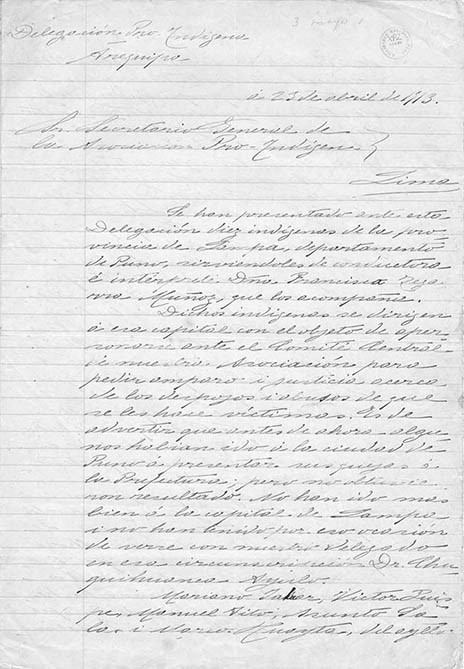 3 mayo
Delegación Pro-Indígena
Arequipa
á 23 de abril de 1913.
Sr. Secretario General de
la Asociación Pro-Indígena
Lima
Se han presentado ante esta
Delegación diez indígenas de la pro-
vincia de Lampa, departamento
de Puno, sirviéndoles de conductora
é intérprete Dña. Francisca
Muñoz, que los acompañe.
Dichos indígenas se dirigen
á esa capital con el objeto de aper-
sonarse ante el Comité Central
de nuestra Asociación para
pedir amparo i justicia acerca
de los despojos i abusos de que
se les hace víctimas. Es de
advertir que antes de ahora algu-
nos habían ido á la ciudad de
Puno a presentar sus quejas á
la Prefectura; pero no obtuvie-
ron resultado. No han ido mas
bien á la capital de Lampa
i no han tenido por eso ocasión
de verse con nuestro delegado
en esa circunscripción Dr. Chu-
quihuanca Ayulo.
Mariano, Victor Quis
pe, Manuel, Asunto
la, i Mario Huayta, del ayllo